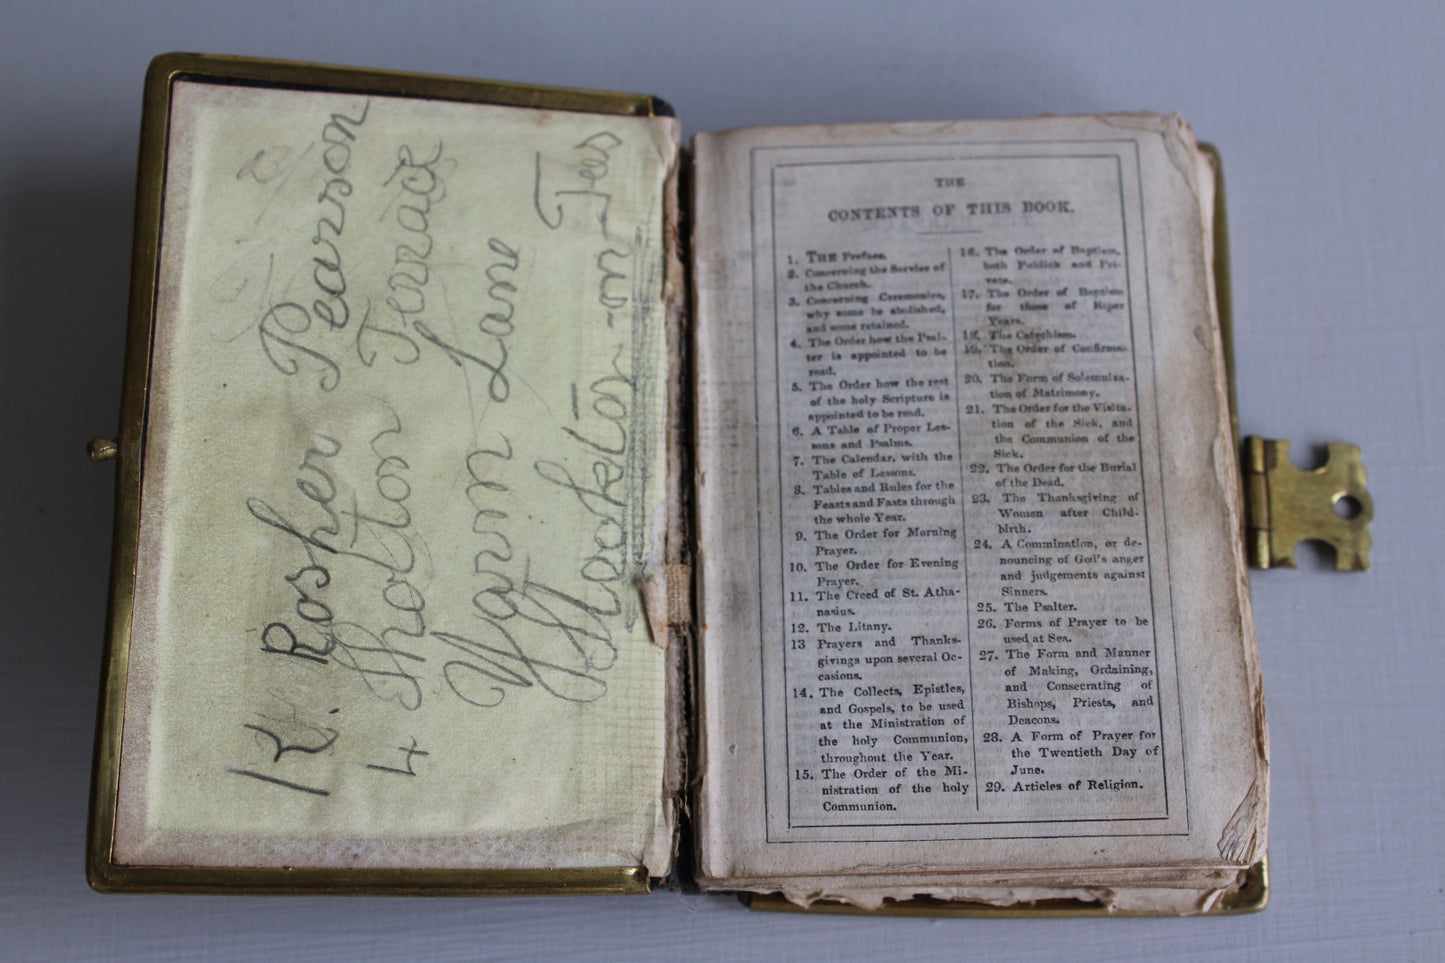 K. Rosher Pearson
4 Tholton Terrace
Warm Lane
Stockton-on-Tees
THE
CONTENTS OF THIS BOOK.
1. THE Preface.
2. Concerning the Service of
the Church.
3. Concerning Ceremonies,
why some be abolished,
and some retained.
4. The Order how the Psal-
ter is appointed to be
read.
5. The Order how the rest
of the holy Scripture is
appointed to be read.
6. A Table of Proper Les-
sons and Psalms.
7. The Calendar, with the
Table of Lessons.
8. Tables and Rules for the
Feasts and Fasts through
the whole Year.
9. The Order for Morning
Prayer.
10. The Order for Evening
Prayer.
11. The Creed of St. Atha-
nasius.
12. The Litany.
13 Prayers and Thanks-
givings upon several Oc-
casions.
14. The Collects, Epistles,
and Gospels, to be used
at the Ministration of
the holy Communion,
throughout the Year.
15. The Order of the Mi-
nistration of the holy
Communion.
16. The Order of Baptism,
both Publick and Pri-
vate.
17. The Order of Baptism
for those of Riper
Years.
18. The Catechism.
19. The Order of Confirma-
tion.
20. The Form of Solemniza-
tion of Matrimony.
21. The Order for the Visita-
tion of the Sick, and
the Communion of the
Sick.
22. The Order for the Burial
of the Dead.
23. The Thanksgiving of
Women after Child-
birth.
24. A Commination, or de-
nouncing of God's anger
and judgements against
Sinners.
25. The Psalter.
26. Forms of Prayer to be
used at Sea.
27. The Form and Manner
of Making, Ordaining,
and Consecrating of
Bishops, Priests, and
Deacons.
28. A Form of Prayer for
the Twentieth Day of
June.
29. Articles of Religion.